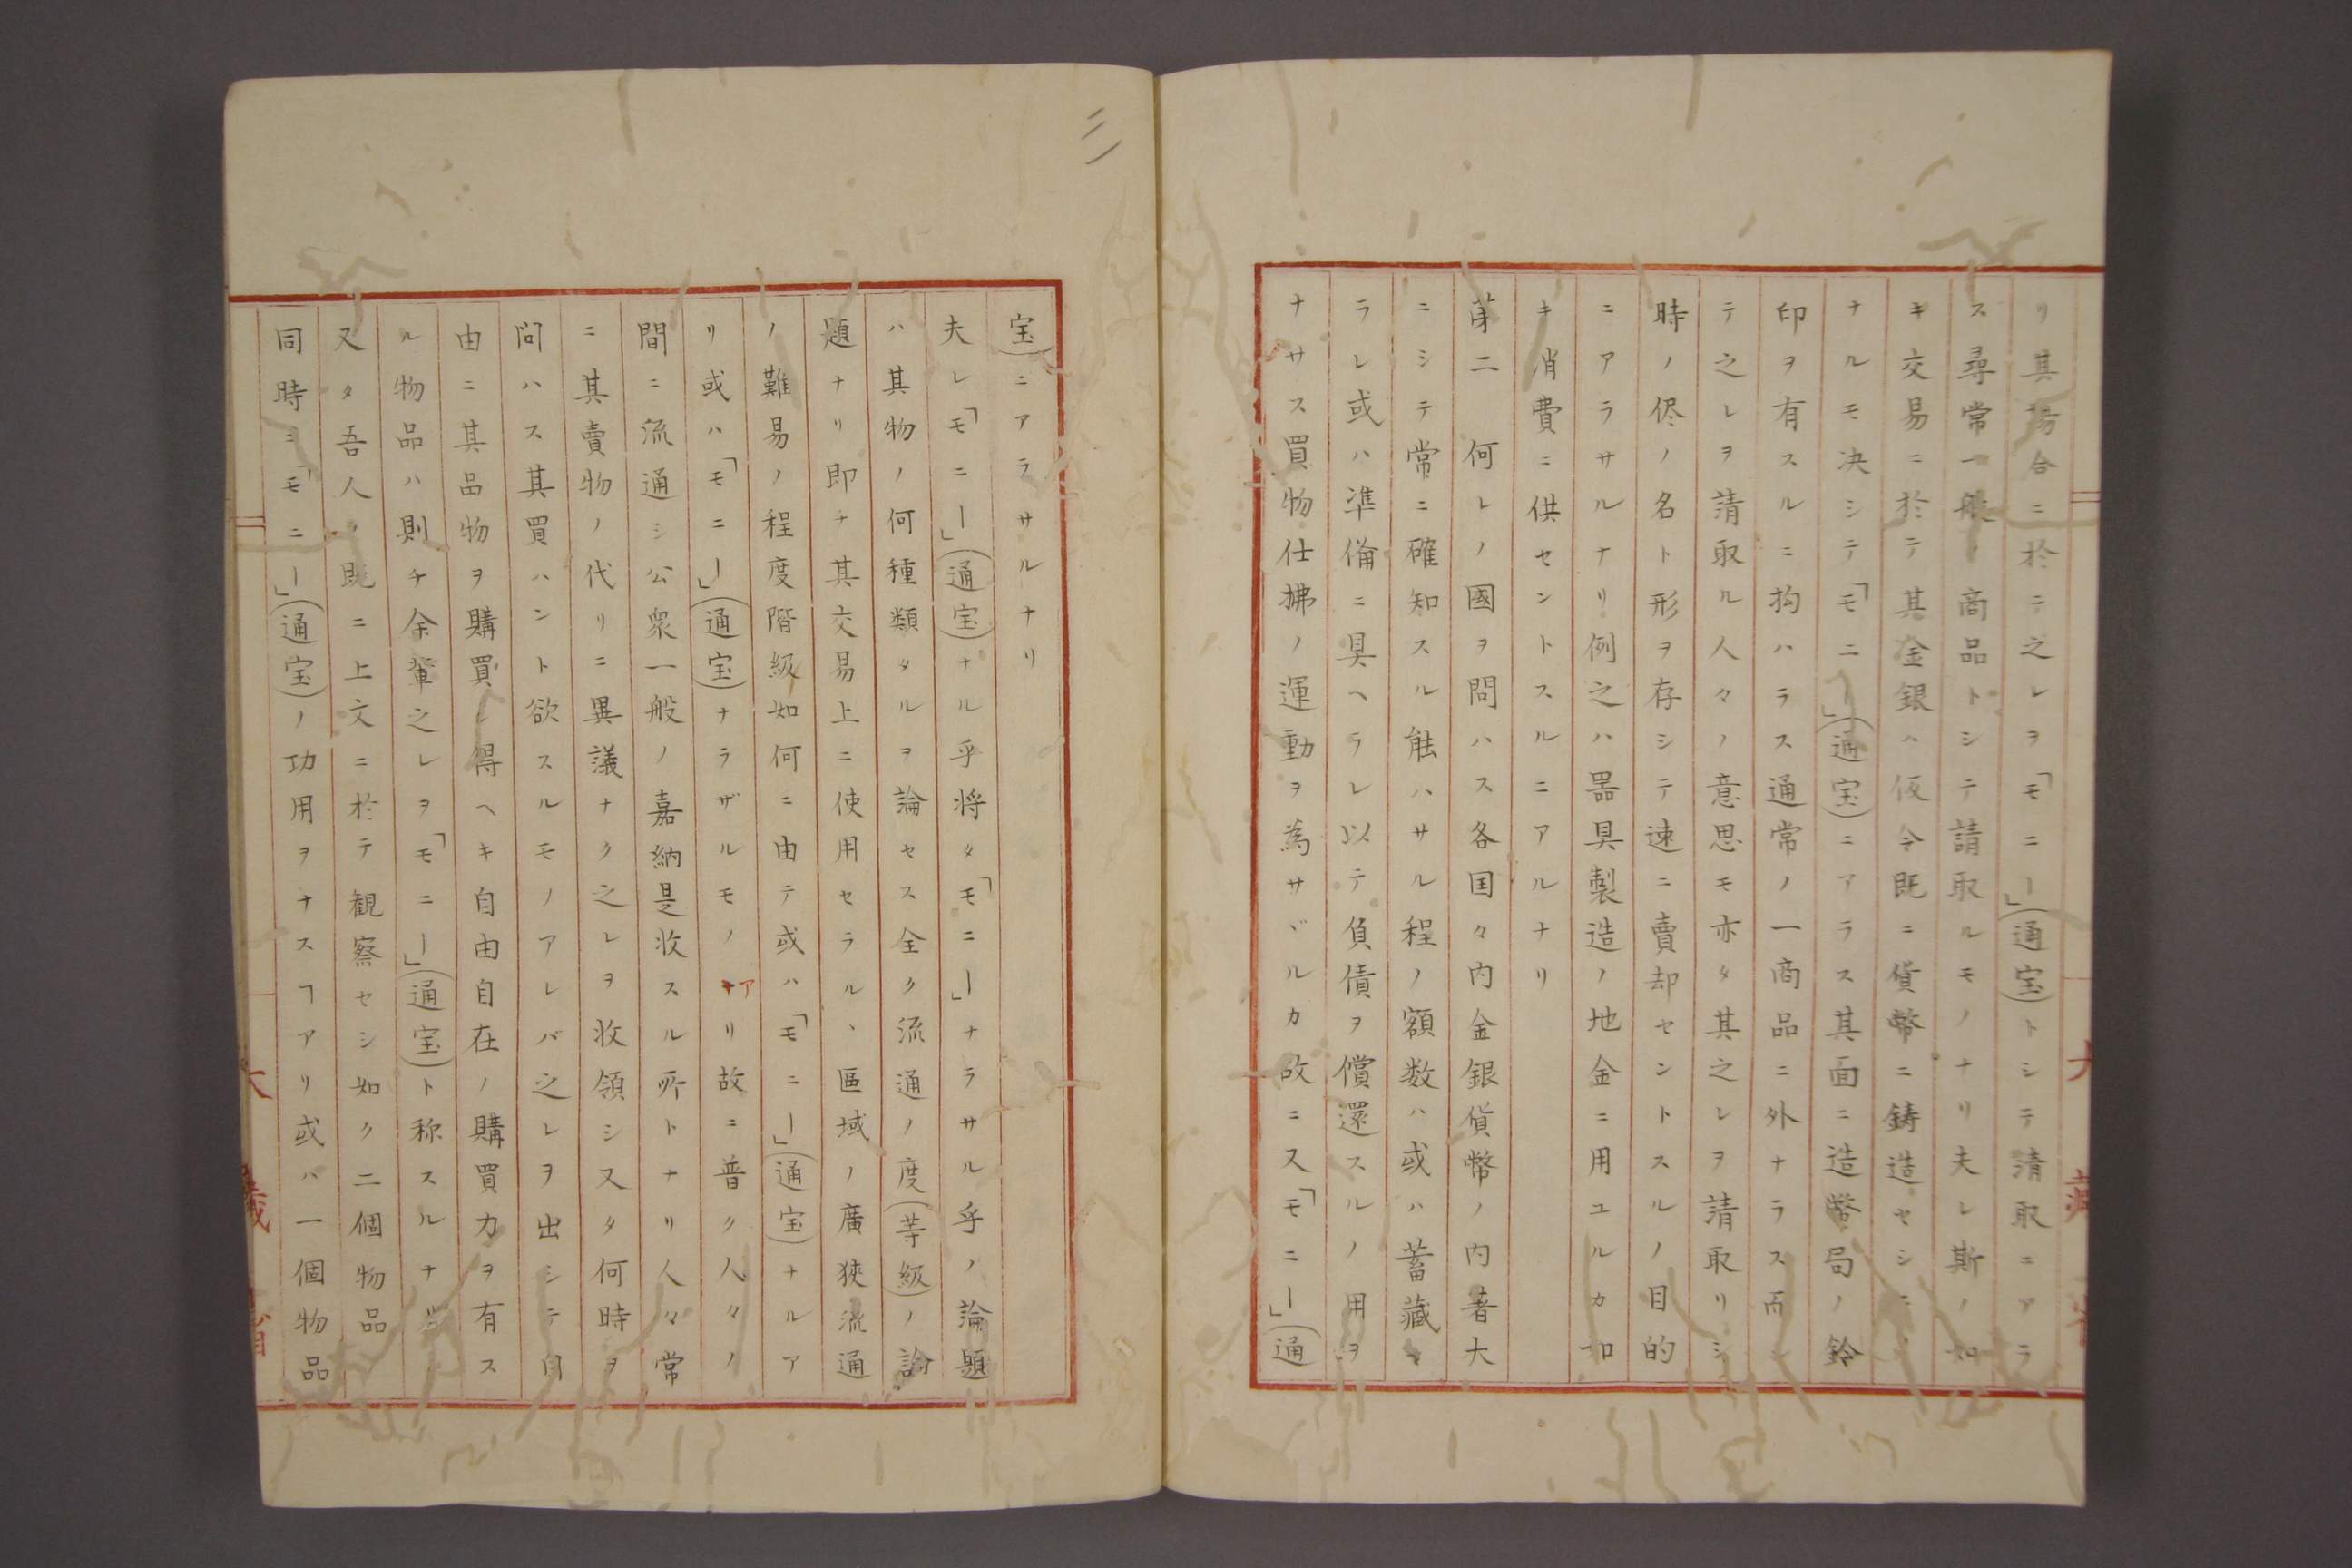 リ其場合ニ於テ之レヲ「モニー」(通宝)トシテ請取ニアラ
ス尋常一般ノ商品トシテ請取ルモノナリ夫レ斯ノ如
キ交易ニ於テ其金銀ハ仮令既ニ貨幣ニ鋳造セシニ
ナルモ决シテ「モニー」(通宝)ニアラス其面ニ造幣局ノ鈴
印ヲ有スルニ拘ハラス通常ノ一商品ニ外ナラス而シ
テ之レヲ請取ル人々ノ意思モ亦タ其之レヲ請取リシ
時ノ侭ノ名ト形ヲ存シテ速ニ賣却セントスルノ目的
ニアラサルナリ例之ハ器具製造ノ地金ニ用ユルカ如
キ消費ニ供セントスルニアルナリ
苐二何レノ國ヲ問ハス各国々内金銀貨幣ノ内著大
ニシテ常ニ確知スル能ハサル程ノ額数ハ或ハ蓄藏セ
ラレ或ハ準備ニ具ヘラレ以テ負債ヲ償還スルノ用ヲ
ナサス買物仕拂ノ運動ヲ為サヾルカ故ニ又「モニー」(通
宝)ニアラサルナリ
夫レ「モニー」(通宝)ナル乎将タ「モニー」ナラサル乎ノ論題
ハ其物ノ何種類タルヲ論セス全ク流通ノ度(等級)ノ論
題ナリ即チ其交易上ニ使用セラルヽ區域ノ廣狹流通
ノ難易ノ程度階級如何ニ由テ或ハ「モニー」(通宝)ナルア
リ或ハ「モニー」(通宝)ナラザルモノアリ故ニ普ク人々ノ
間ニ流通シ公衆一般ノ嘉納是收スル所トナリ人々常
ニ其賣物ノ代リニ異議ナク之レヲ收領シ又タ何時ヲ
問ハス其買ハント欲スルモノアレバ之レヲ出シテ自
由ニ其品物ヲ購買シ得ヘキ自由自在ノ購買力ヲ有ス
ル物品ハ則チ余輩之レヲ「モニー」(通宝)ト称スルナリ
又タ吾人ノ既ニ上文ニ於テ観察セシ如ク二個物品
同時ニ「モニー」(通宝)ノ功用ヲナスヿアリ或ハ一個物品
三